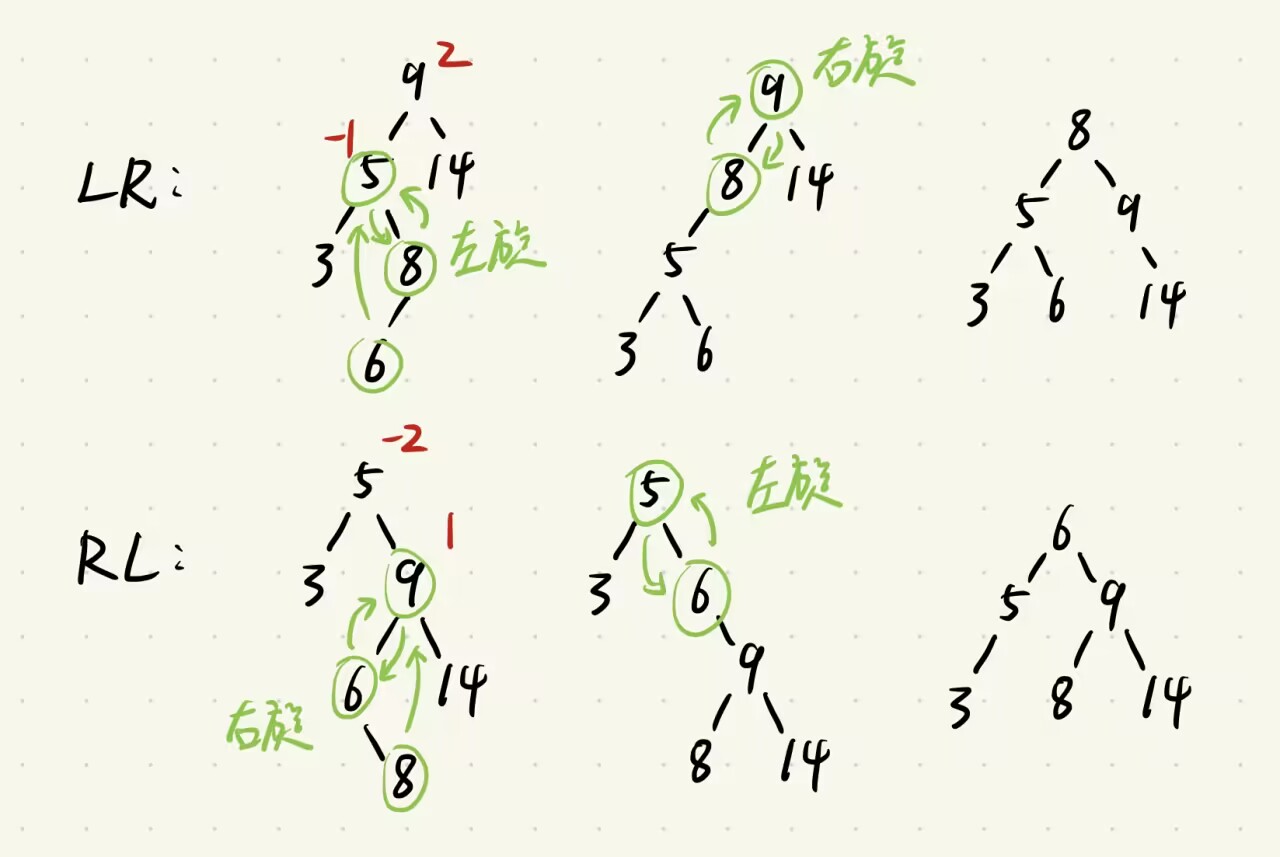 LR:
9 2
-1
5 14
3 8 左旋
6
9 右旋
8 14
5
3 6
8
5 9
3 6 14
RL:
5 -2
1
3 9
6 14
右旋
8
5 左旋
3 6
9
8 14
6
5 9
3 8 14